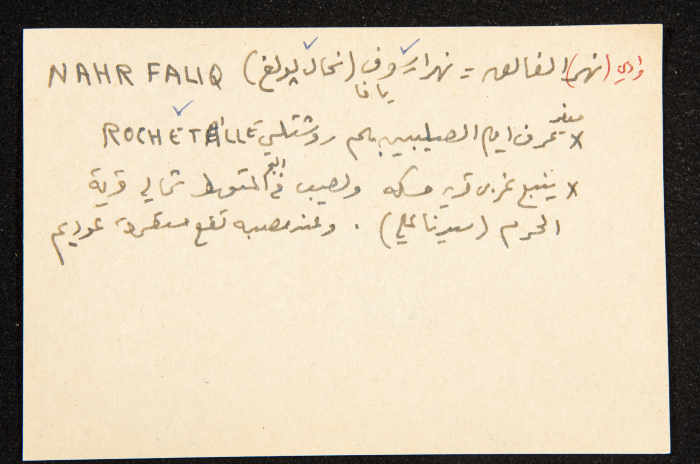 وادي (نهر) الفالق = نهر ارسوف (نحال پولغ) NAHR FALIQ
يافا
صغير
x عرف ايام الصليبيين باسم روشتلي ROCHETAILLÉE
x ينبع غربي قرية مسكه ويصب في البحر المتوسط شمالي قرية
الحرم (سيدنا علي) . وعند مصبه تقع مستعمرة